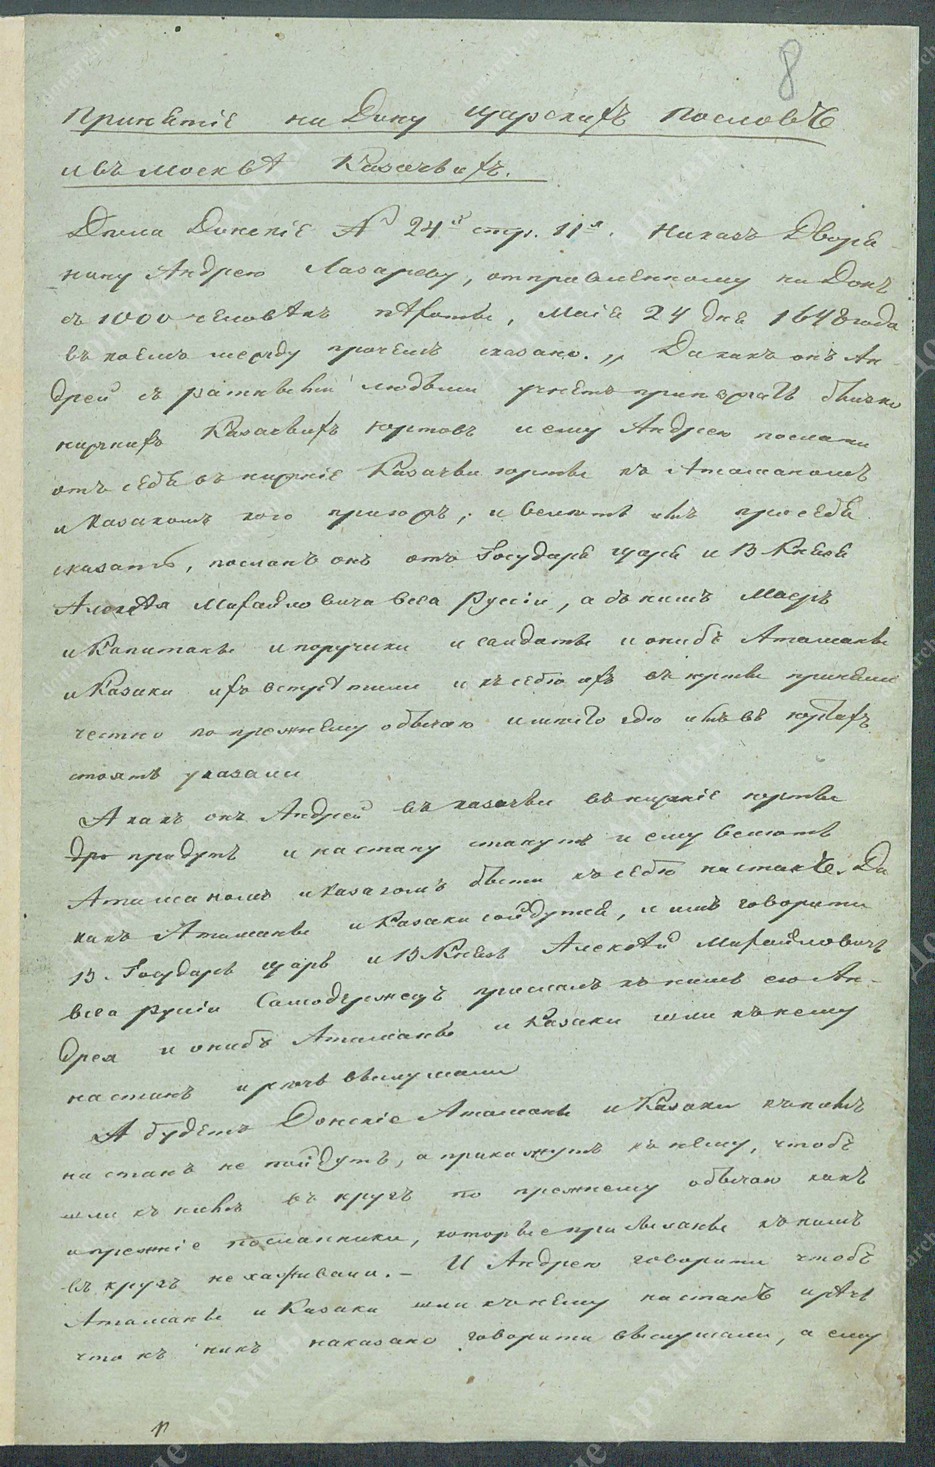 8
Принятіе на Дону царскихъ пословъ
и въ Москвѣ Казачьихъ.
Дѣла Донскіе № 24й стр. 11я. Наказъ Дворя-
нину Андрею Лазареву, отправленному на Донъ
съ 1000 человѣкъ пѣхоты, Маія 24 дня 1648 года
въ коемъ между прочемъ сказано. „ Да какъ онъ Ан-
дрей съ ратными людьми учнетъ приѣзжать близко
нижнихъ Казачьихъ юртовъ и ему Андрею послати
отъ себя въ нижніе Казачьи юрты къ Атаманомъ
и Казакомъ кого пригожъ, и велѣть имъ про себя
сказать, посланъ онъ отъ Государя царя и В Князя
Алексѣя Михайловича всеа Русіи, а съ нимъ Маеръ
и Капитаны и поручики и салдаты и онибъ Атаманы
и Казаки ихъ встрѣтили и къ себѣ ихъ въ юрты приняли
честно по прежнему обычаю и мѣсто гдѣ имъ въ юртахъ
стоять указали
А какъ онъ Андрей въ казачьи въ нижніе юрты
придутъ и на стану станутъ и ему велѣть
Атаманомъ и Казакомъ быти къ себѣ на станъ. Да
какъ Атаманы и Казаки сойдутся, и имъ говорити
В. Государь царь и В Князь Алексѣй Михайловичь
всеа Русіи Самодержецъ прислалъ къ нимъ его Ан-
дрея и онибъ Атаманы и Казаки шли къ нему
на станъ и рѣчь выслушали
А будетъ Донскіе Атаманы и Казаки къ нимъ
на станъ не пойдутъ, а прикажутъ къ нему, чтобъ
шли къ нимъ въ кругъ по прежнему обычаю какъ
и прежніе посланники, которые присыланы къ нимъ
въ кругъ не хаживали. – И Андрею говорити чтобъ
Атаманы и Казаки шли къ нему на станъ и рѣчь
что къ нимъ наказано говорити выслушали, а ему